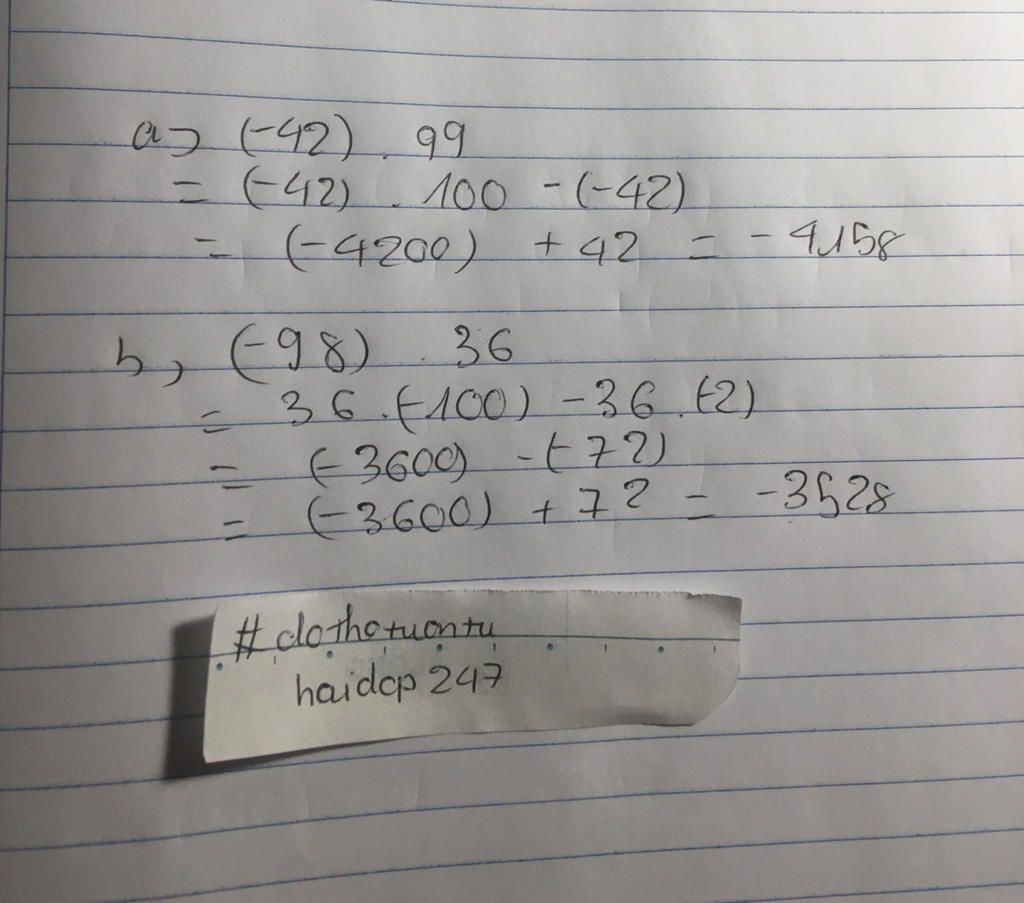 a) (-42) . 99
= (-42) . 100 - (-42)
= (-4200) + 42 = - 4158
b, (-98) . 36
= 36 . (-100) - 36 . (-2)
= (-3600) - (-72)
= (-3600) + 72 = -3528
#dothotuontu
haidcp 247